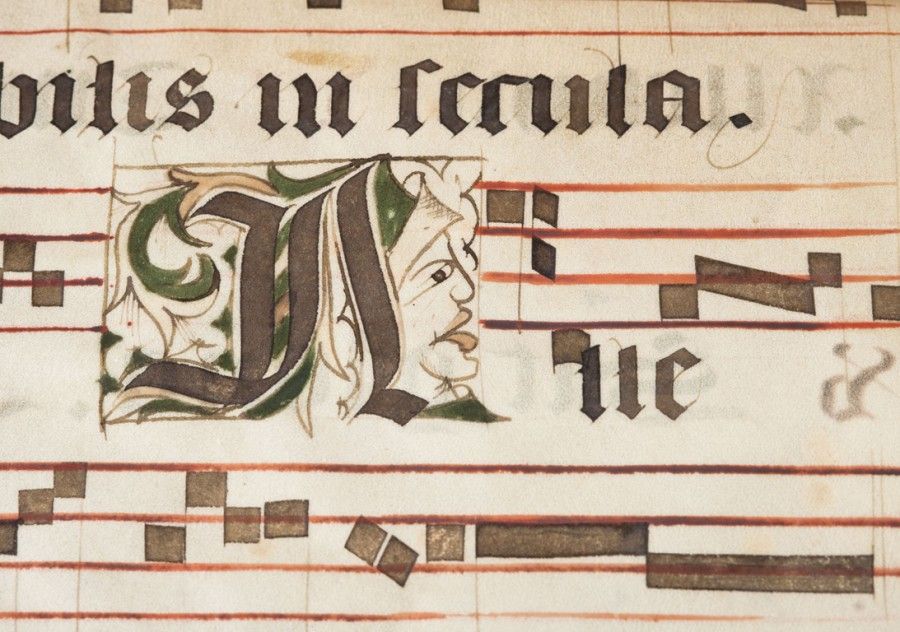 bilis in secula.
Alle